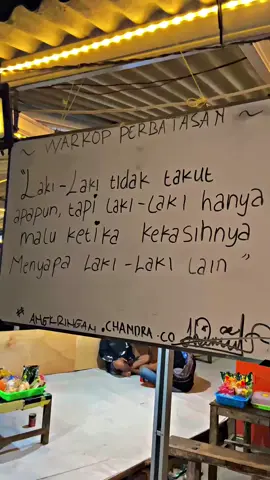 ~ WARKOP PERBATASAN ~
"LAKI-LAKI tidak takut
apapun, tapi LAKI-LAKI hanya
malu ketika kekasihnya
Menyapa LAKI-LAKI lain"
# ANGKRINGAN.CHANDRA.CO